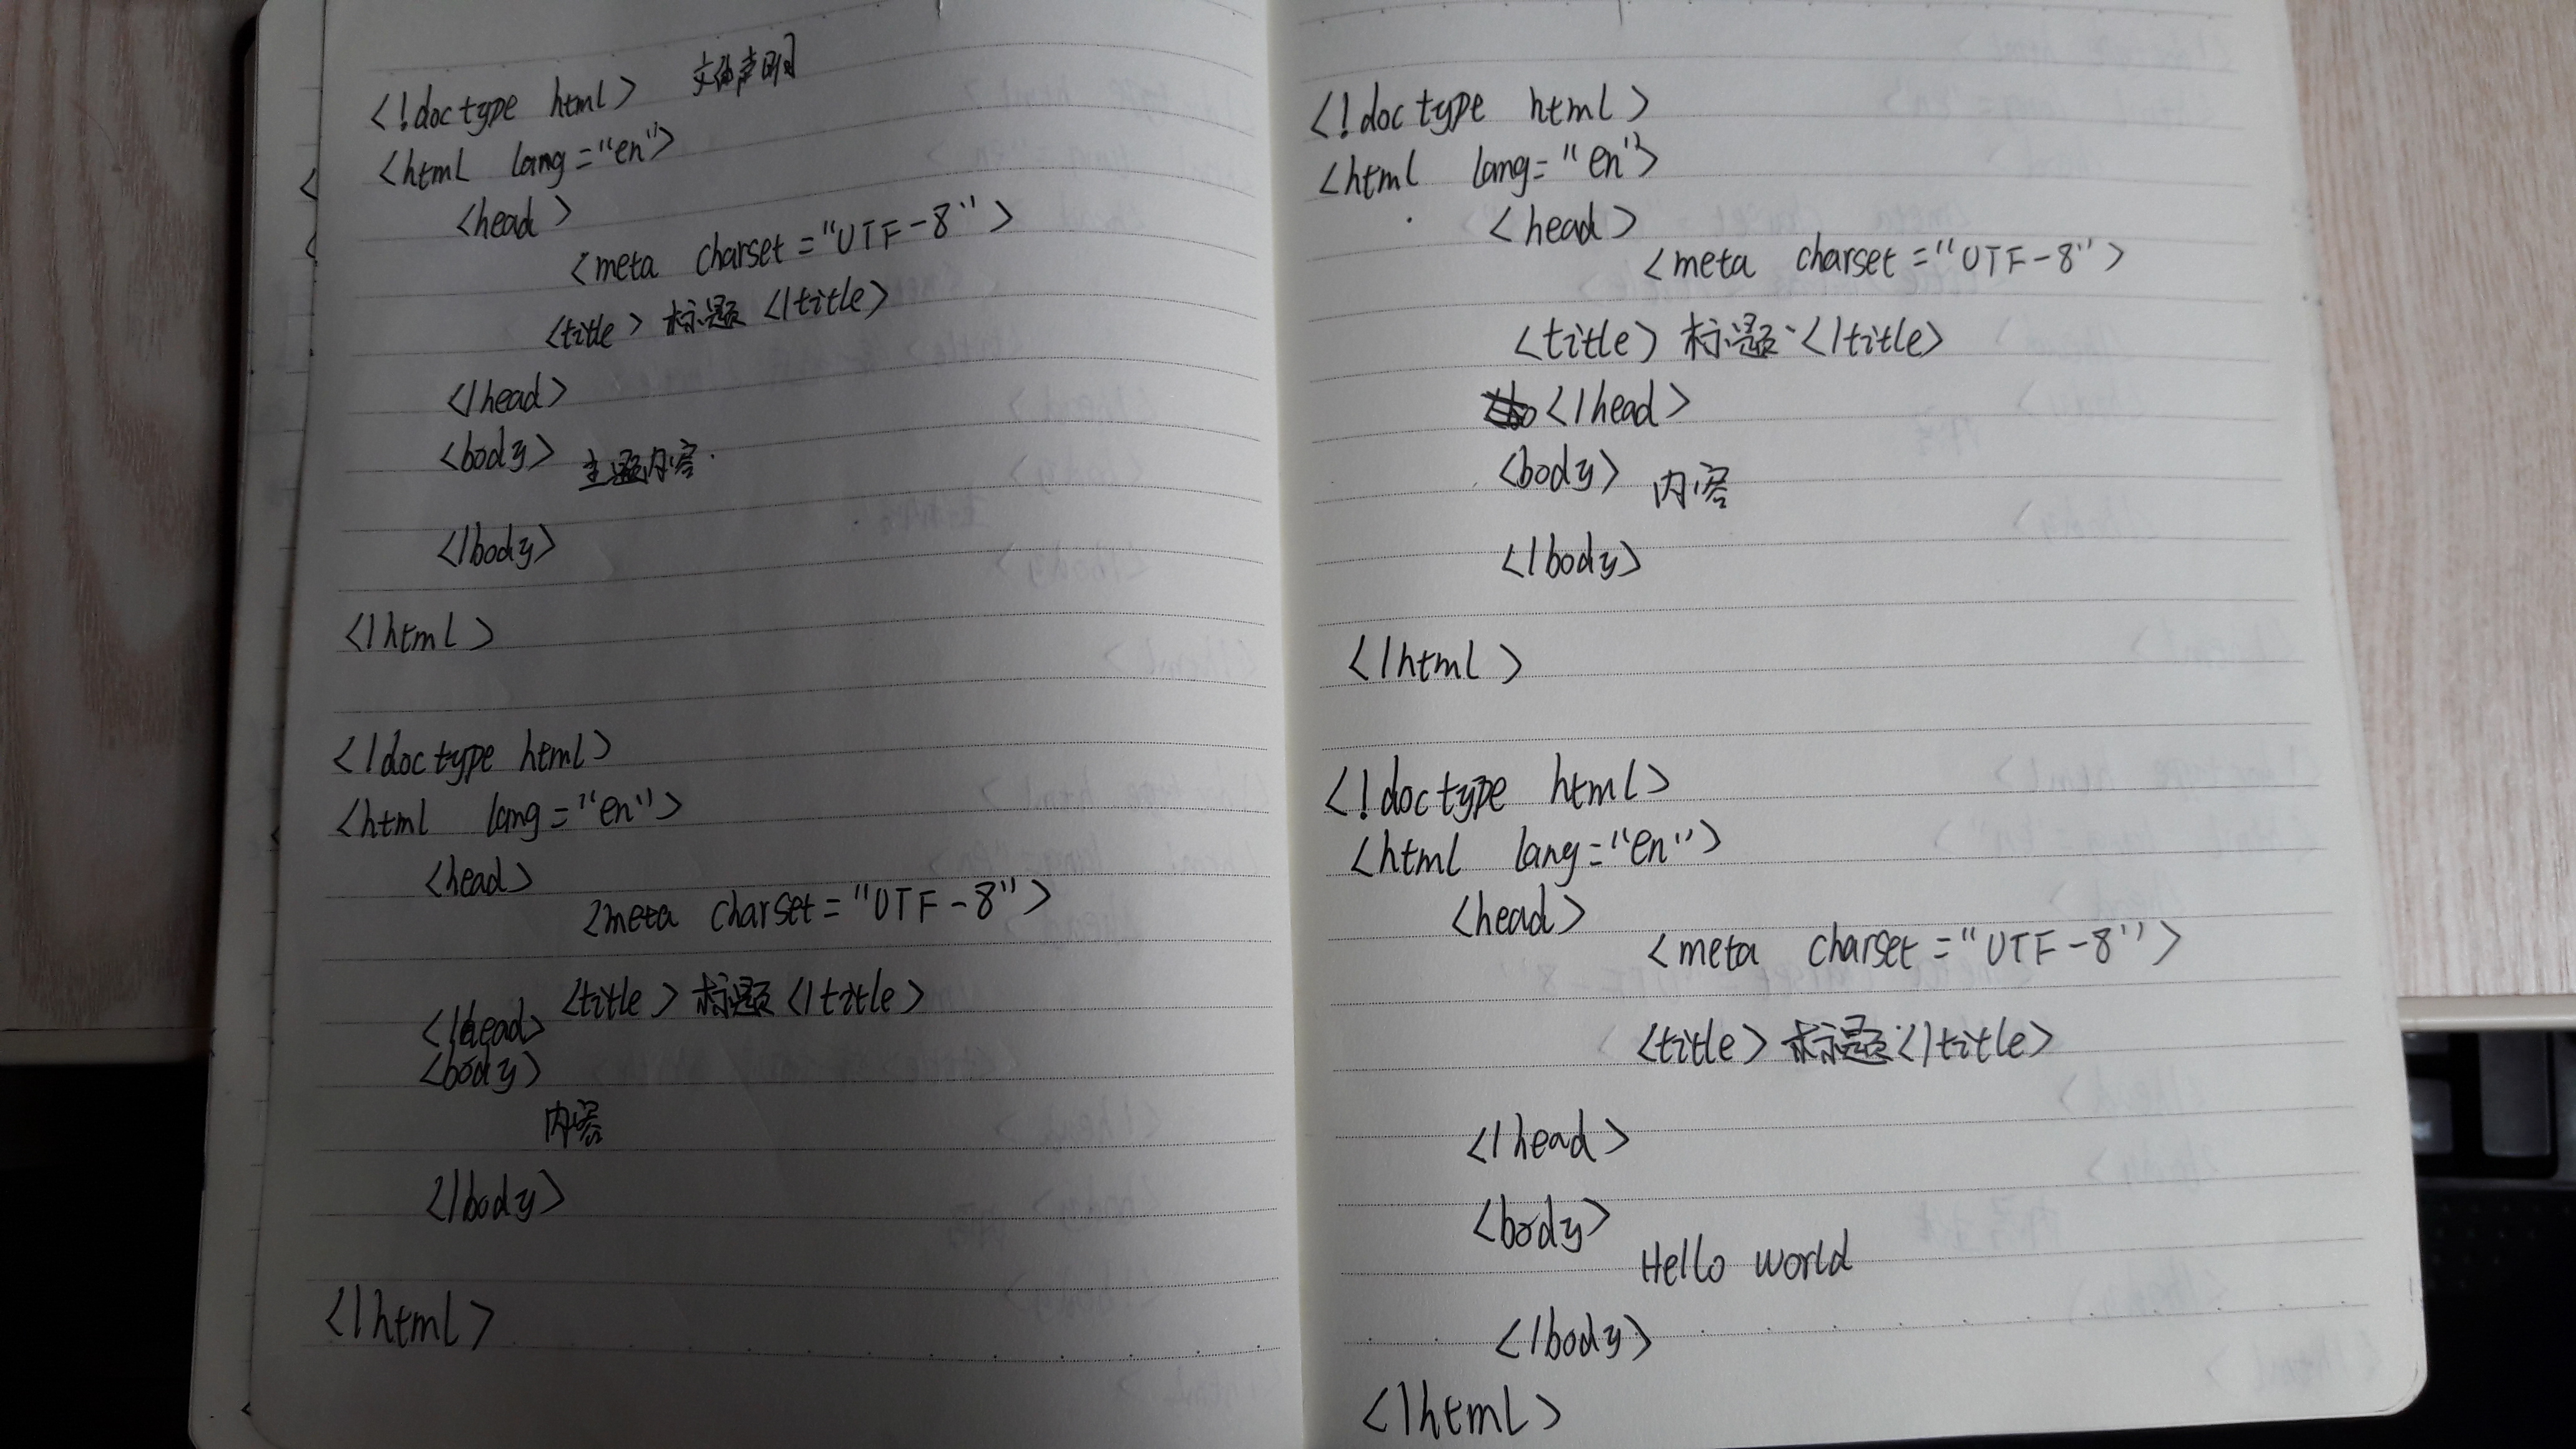 <!doctype html> 文件声明
<html lang="en">
<head>
<meta charset="UTF-8">
<title> 标题 </title>
</head>
<body> 主题内容.
</body>
</html>
<!doctype html>
<html lang="en">
<head>
<meta charset="UTF-8">
<title> 标题 </title>
</head>
<body>
内容
</body>
</html>
<!doctype html>
<html lang="en">
<head>
<meta charset="UTF-8">
<title> 标题 </title>
</head>
<body> 内容
</body>
</html>
<!doctype html>
<html lang="en">
<head>
<meta charset="UTF-8">
<title> 标题 </title>
</head>
<body>
Hello world
</body>
</html>